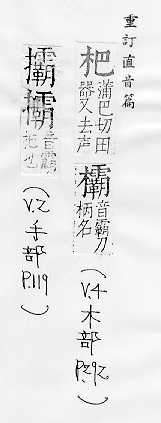 重訂直音篇
杷 蒲巴切田
器又去声
欛 音霸刀
柄名
(V.4 木部 P.292)
音霸
(V.2 手部 P.119)